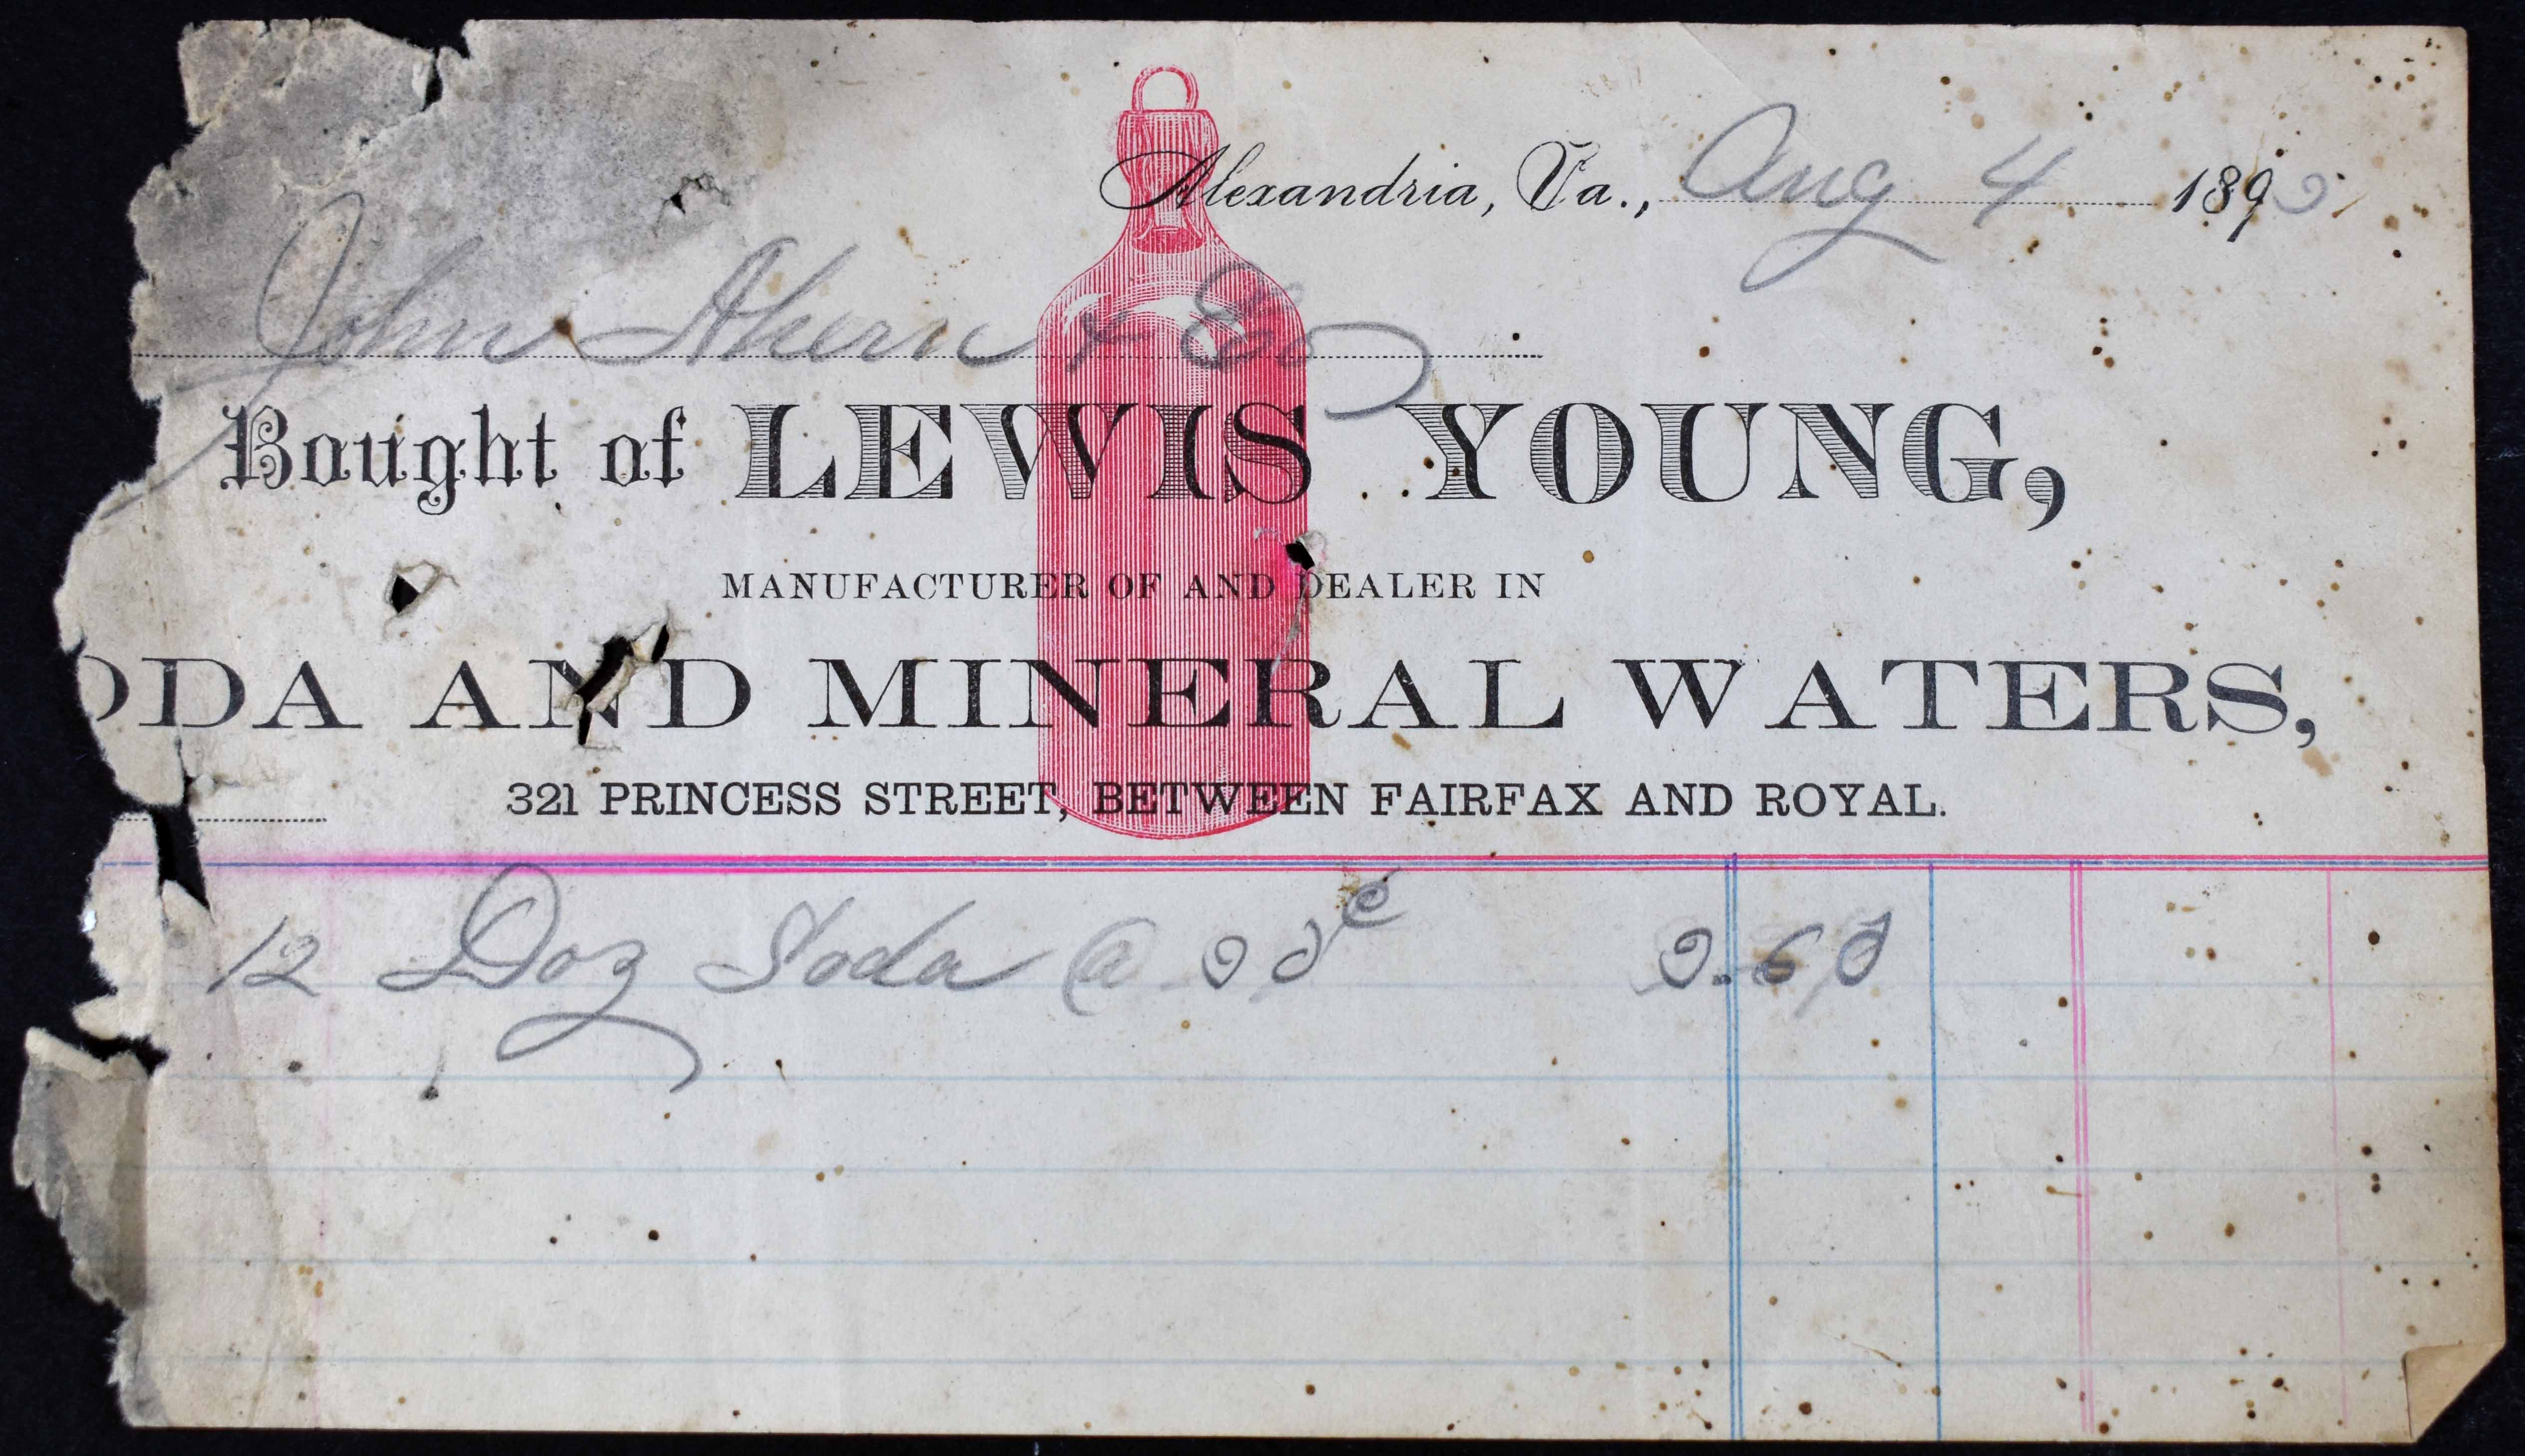 Alexandria, Va., Aug 4 1893
John Ahern & Co
Bought of LEWIS YOUNG,
MANUFACTURER OF AND DEALER IN
ODA AND MINERAL WATERS,
321 PRINCESS STREET, BETWEEN FAIRFAX AND ROYAL.
12 Doz Soda @ 30c 3.60